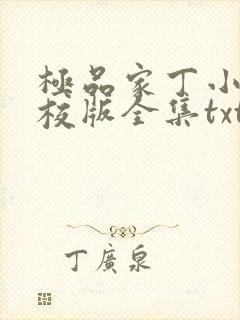 極品家丁小
校版全集txt
丁廣泉